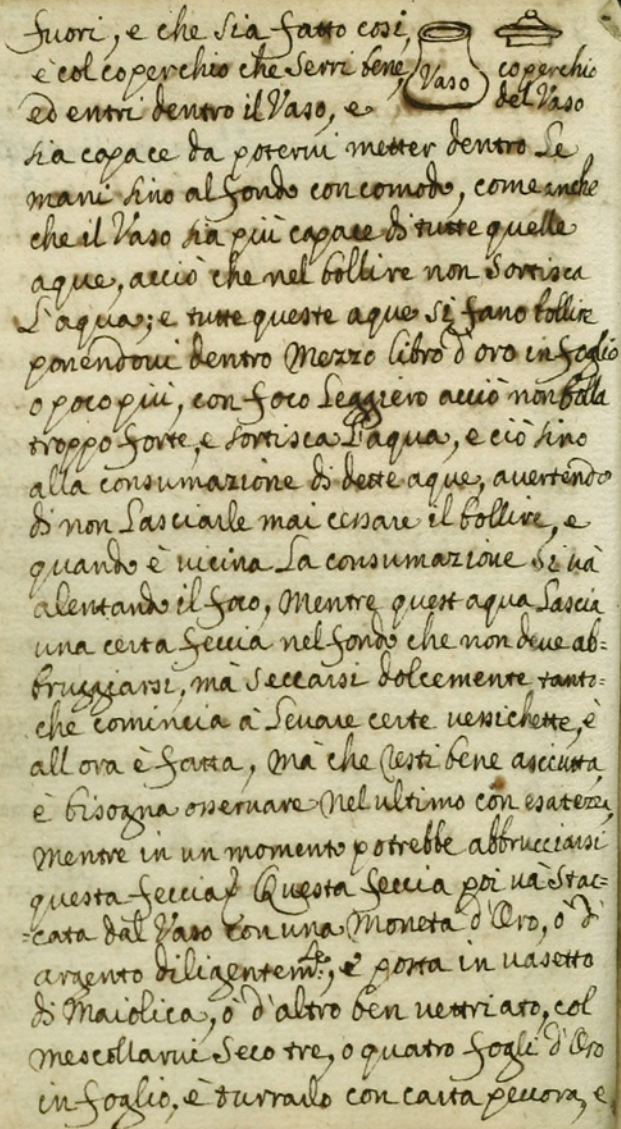 fuori, e che sia fatto così,
è col coperchio che serri bene,
Vaso
coperchio
del Vaso
ed entri dentro il Vaso, e
sia capace da potervi metter dentro le
mani sino al fondo con comodo, come anche
che il Vaso sia più capace di tutte quelle
aque, acciò che nel bollire non sortisca
L'aqua; e tutte queste aque si fano bollire
ponendovi dentro Mezzo libro d'oro in foglio
o poco più, con foco Leggiero acciò non bolla
troppo forte, e sortisca L'aqua, e ciò sino
alla consumazione di dette aque, avertendo
di non Lasciarle mai cessare il bollire, e
quando è vicina La consumazione si và
alentando il foco, Mentre quest aqua Lascia
una certa feccia nel fondo che non deve ab=
bruggiarsi, mà seccarsi dolcemente tanto=
che comincia à Levare certe vessichette, è
all ora è fatta, Mà che resti bene asciutta,
è bisogna osservare Nel ultimo con esatezza,
Mentre in un momento potrebbe abbrucciarsi
questa feccia. Questa feccia poi và stac=
=cata dal Vaso con una Moneta d'Oro, ò d'
argento diligentem.te, e posta in vasetto
di Maiolica, ò d'altro ben vettriato, col
mescollarvi seco tre, o quatro fogli d'Oro
in foglio, è turrarlo con carta pecora, e